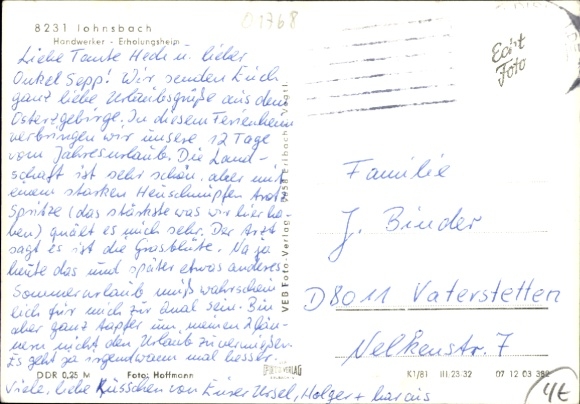 01768
8231 Johnsbach
Handwerker - Erholungsheim
Liebe Tante Hedi u. lieber
Onkel Sepp! Wir senden Euch
ganz liebe Urlaubsgrüße aus dem
Osterzgebirge. In diesem Ferienheim
verbringen wir unsere 12 Tage
vom Jahresurlaub. Die Land-
schaft ist sehr schön, aber mit
einem starken Heuschnupfen trotz
Spritze (das stärkste was wir hier ha-
ben) quält es mich sehr. Der Arzt
sagt es ist die Grasblüte. Na ja
heute das und später etwas anderes
Sommerurlaub muß wahrschein-
lich für mich zur Qual sein. Bin
aber ganz tapfer um meinen Män-
nern nicht den Urlaub zu vermiesen.
Es geht ja irgendwann mal besser.
Viele, liebe Küsschen von Eurer Ursel, Holger + Marcus
DDR 0,25 M Foto: Hoffmann
VEB Foto-Verlag 9658 Erlbach Vogtl.
Echt
Foto
Familie
J. Binder
D8011 Vaterstetten
Nelkenstr. 7
K1/81 III 23 32 07 12 03 382
4€